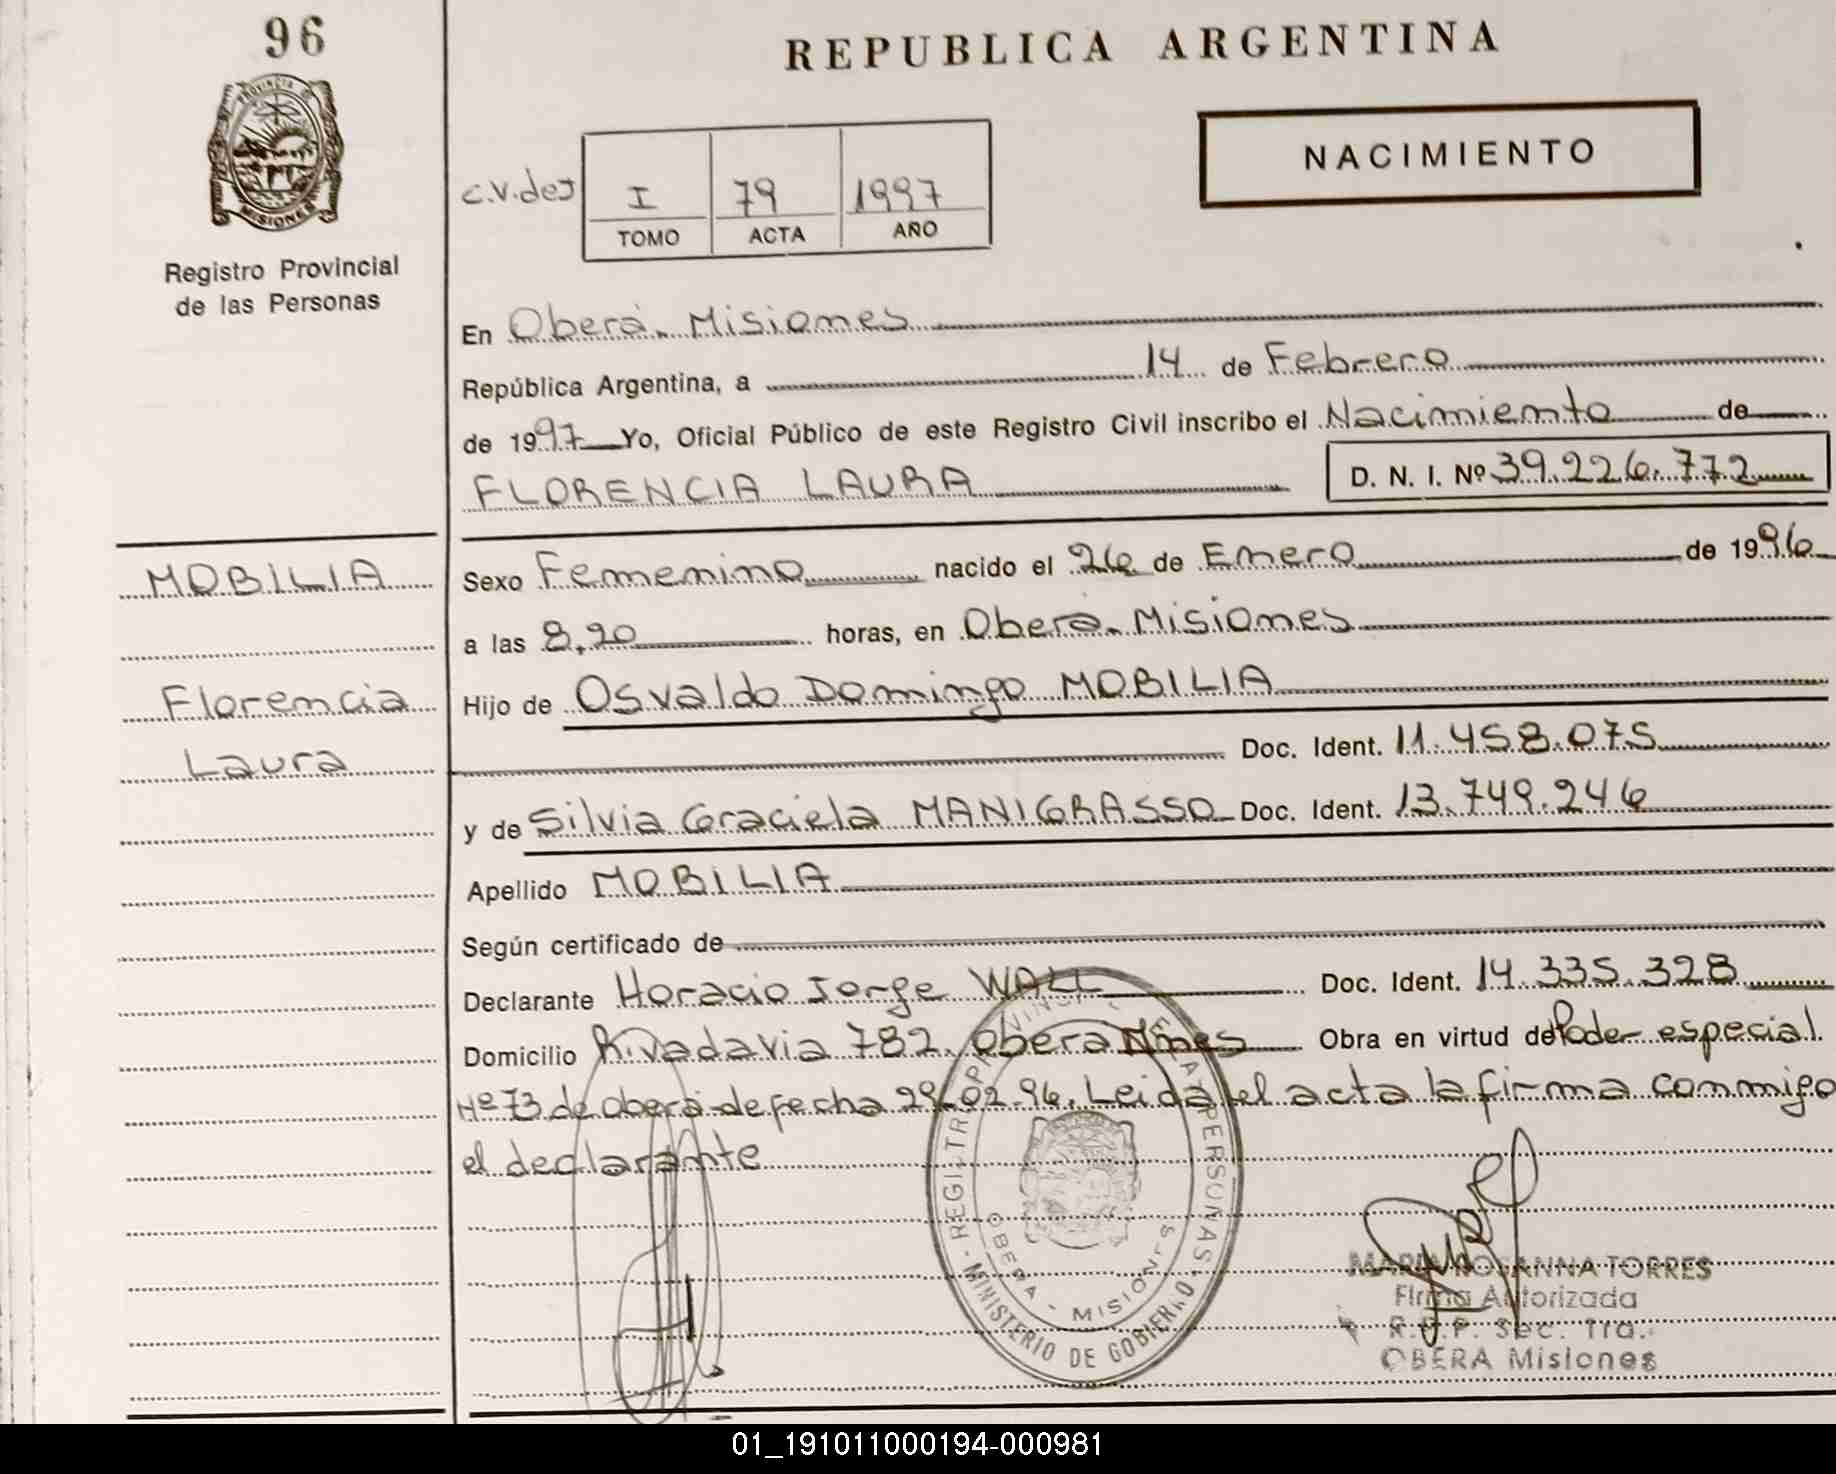 96
REPUBLICA ARGENTINA
PROVINCIA DE
MISIONES
Registro Provincial
de las Personas
NACIMIENTO
c.v.des
I 79 1997
TOMO ACTA AÑO
En Oberá. Misiones
República Argentina, a 14 de Febrero
de 1997 Yo, Oficial Público de este Registro Civil inscribo el Nacimiento de
FLORENCIA LAURA D. N. I. Nº 39.226.772
MOBILIA
Florencia
Laura
Sexo Femenino nacido el 26 de Enero de 1996
a las 8,20 horas, en Oberá. Misiones
Hijo de Osvaldo Domingo MOBILIA
Doc. Ident. 11.458.075
y de Silvia Graciela MANIGRASSO Doc. Ident. 13.749.246
Apellido MOBILIA
Según certificado de
Declarante Horacio Jorge WALL Doc. Ident. 14.335.328
Domicilio Rivadavia 782. Obera Mnes Obra en virtud de Poder especial
Nº 73 de Oberá de fecha 29-02-96. Leida el acta la firma conmigo
el declarante
REGISTRO PROVINCIAL DE LAS PERSONAS
OBERA - MISIONES
MINISTERIO DE GOBIERNO
MARIA ROSANNA TORRES
Firma Autorizada
R.P.P. Sec. 1ra.
OBERA Misiones
01_191011000194-000981